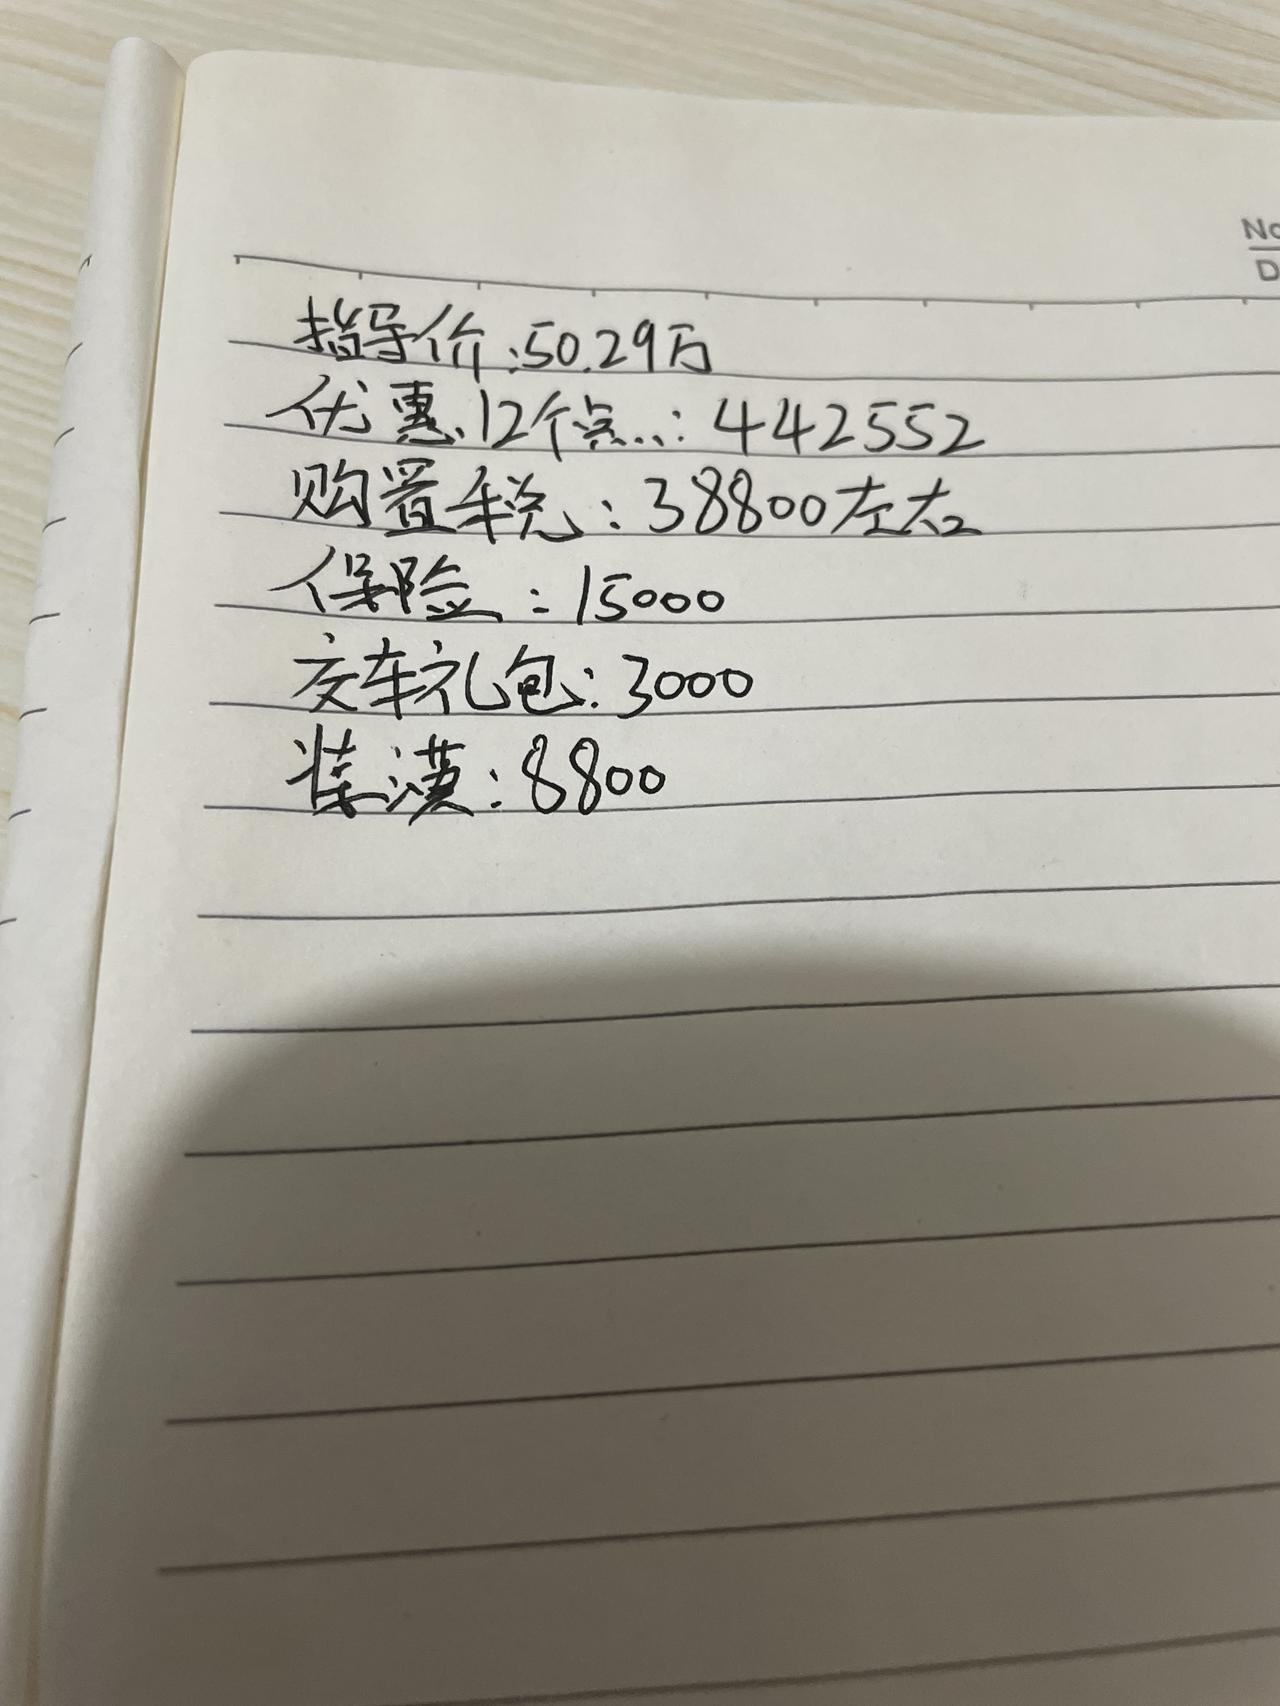 No
D
指导价:50.29万
优惠.12个点...:442552
购置税:38800左右
保险:15000
交车礼包:3000
装潢:8800